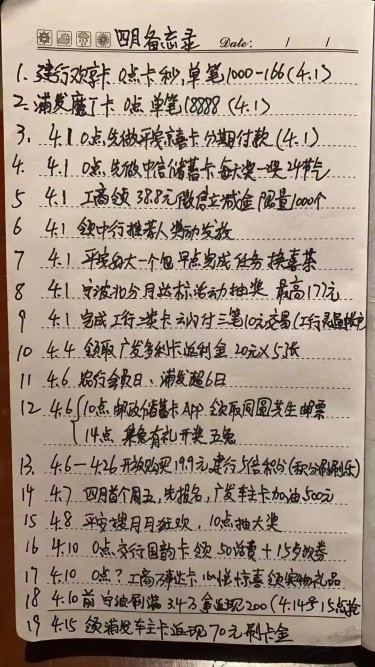 四月备忘录 Date: / /
1. 建行欢享卡 0点卡秒,单笔1000-166(4.1)
2. 浦发魔丁卡 0点 单笔18888 (4.1)
3. 4.1 0点,先做平安京喜卡 分期付款(4.1)
4. 4.1 0点先做中信储蓄卡 每大奖一奖 24节气
5 4.1 工商领 38.8元微信立减金 限量1000个
6 4.1 领中行推荐人奖励发放
7 4.1 平安 大一个包 早点完成任务 换喜茶
8 4.1 宁波 分月达标活动 抽奖 最高171元
9 4.1 完成工行二类卡云闪付三笔10元交易(工行
10 4.4 领取广发多利卡返利金 20元×5张
11 4.6 农行会员日、浦发超6日
12 4.6 10点 邮政储蓄卡APP 领取同圆共生邮票
14点 集兔有礼开奖 五兔
13. 4.6-4.26 开放购买19.9元建行5倍积分(积分 刷乐)
14 4.7 四月首个周五,先报名,广发车主卡加油500元
15 4.8 平安搜月月狂欢,10点抽大奖
16 4.10 0点 交行国韵卡 领50话费+15岁 券
17 4.10 0点?工商万事达卡 心悦惊喜 领实物礼品
18 4.10前 白 刷满 3.4万 返现200(4.14号15点抢
19 4.15 领浦发车主卡返现70元刷卡金